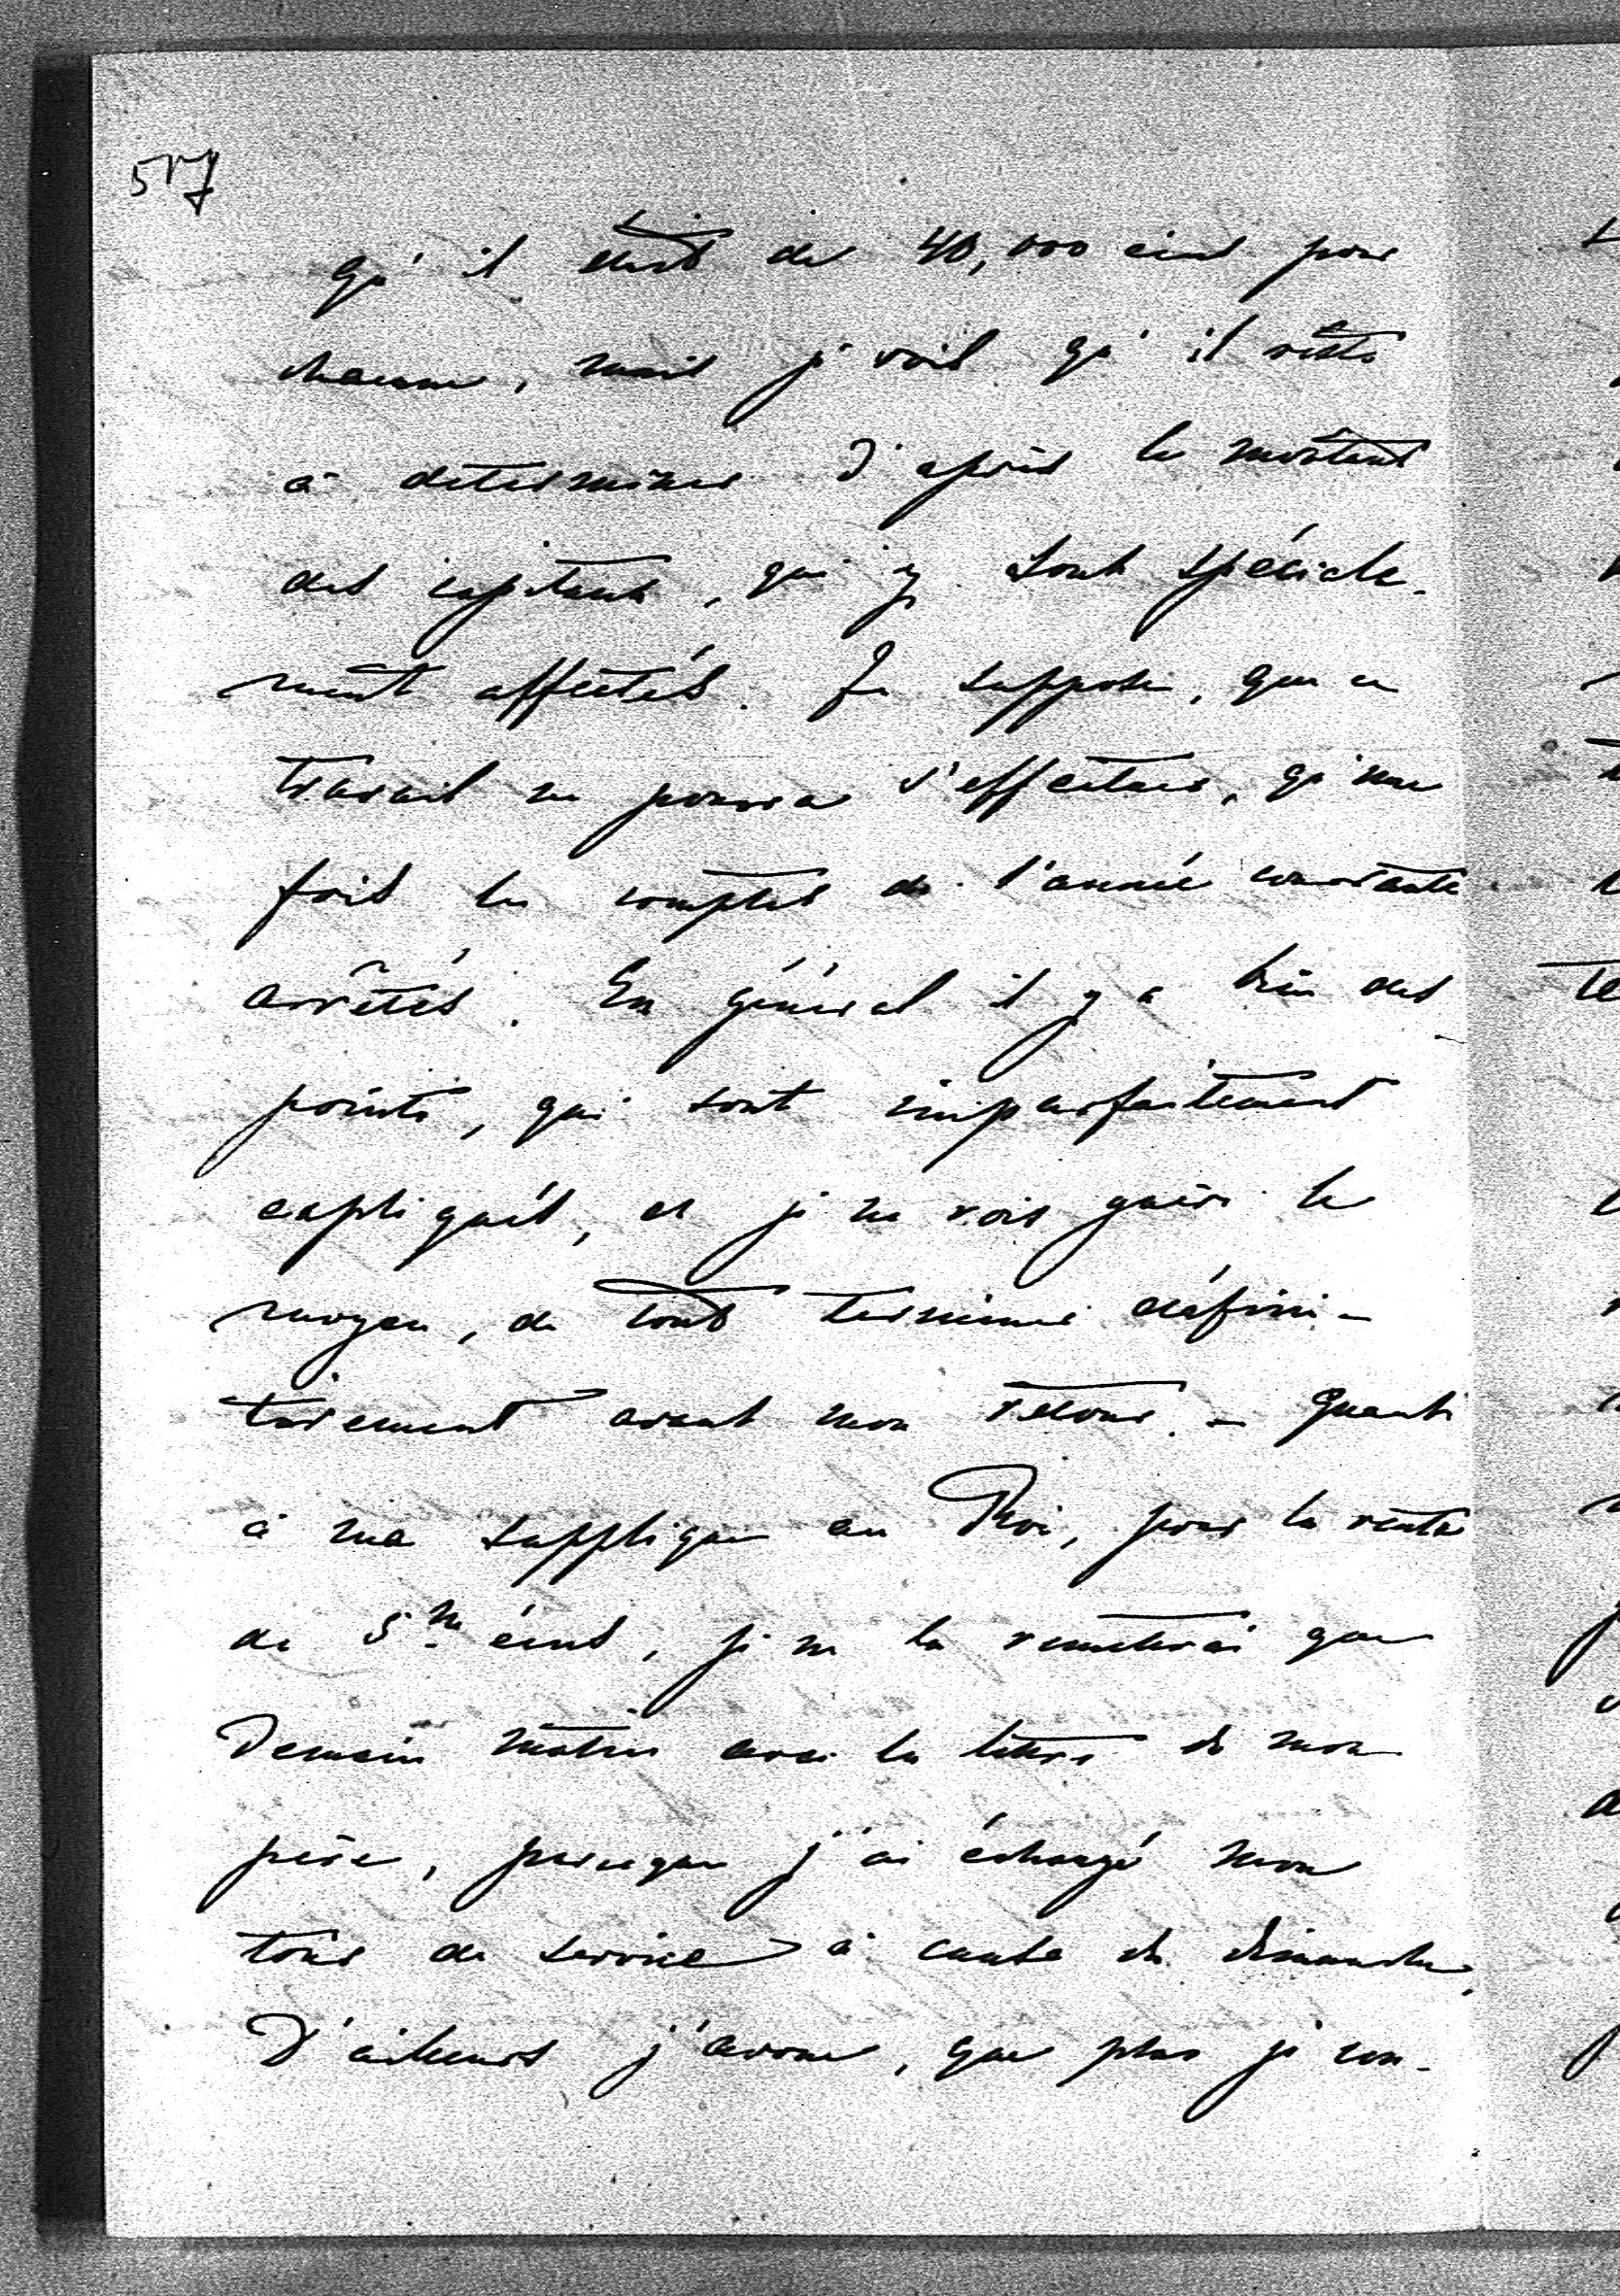 517
qu'il était de 40,000 écus pour
chacune, mais je vois qu'il reste
à determiner d'après le montant
des capitaux, qui y sont spéciale-
ment affectés. Je suppose, que ce
travail ne pourra s'effectuer, qu'une
fois les comptes de l'année courante
arrêtés. En général il y a bien des
points, qui sont imparfaitement
expliqués, et je ne vois guère le
moyen, de tout terminer défini-
tivement avant mon retour. - Quant
à ma supplique au Roi, pour la rente
de 5 m écus, je ne la remettrai que
demain matin avec la lettre de mon
père, parceque j'ai échangé mon
tour de service à cause du dimanche.
D'ailleurs j'avoue, que plus je con-